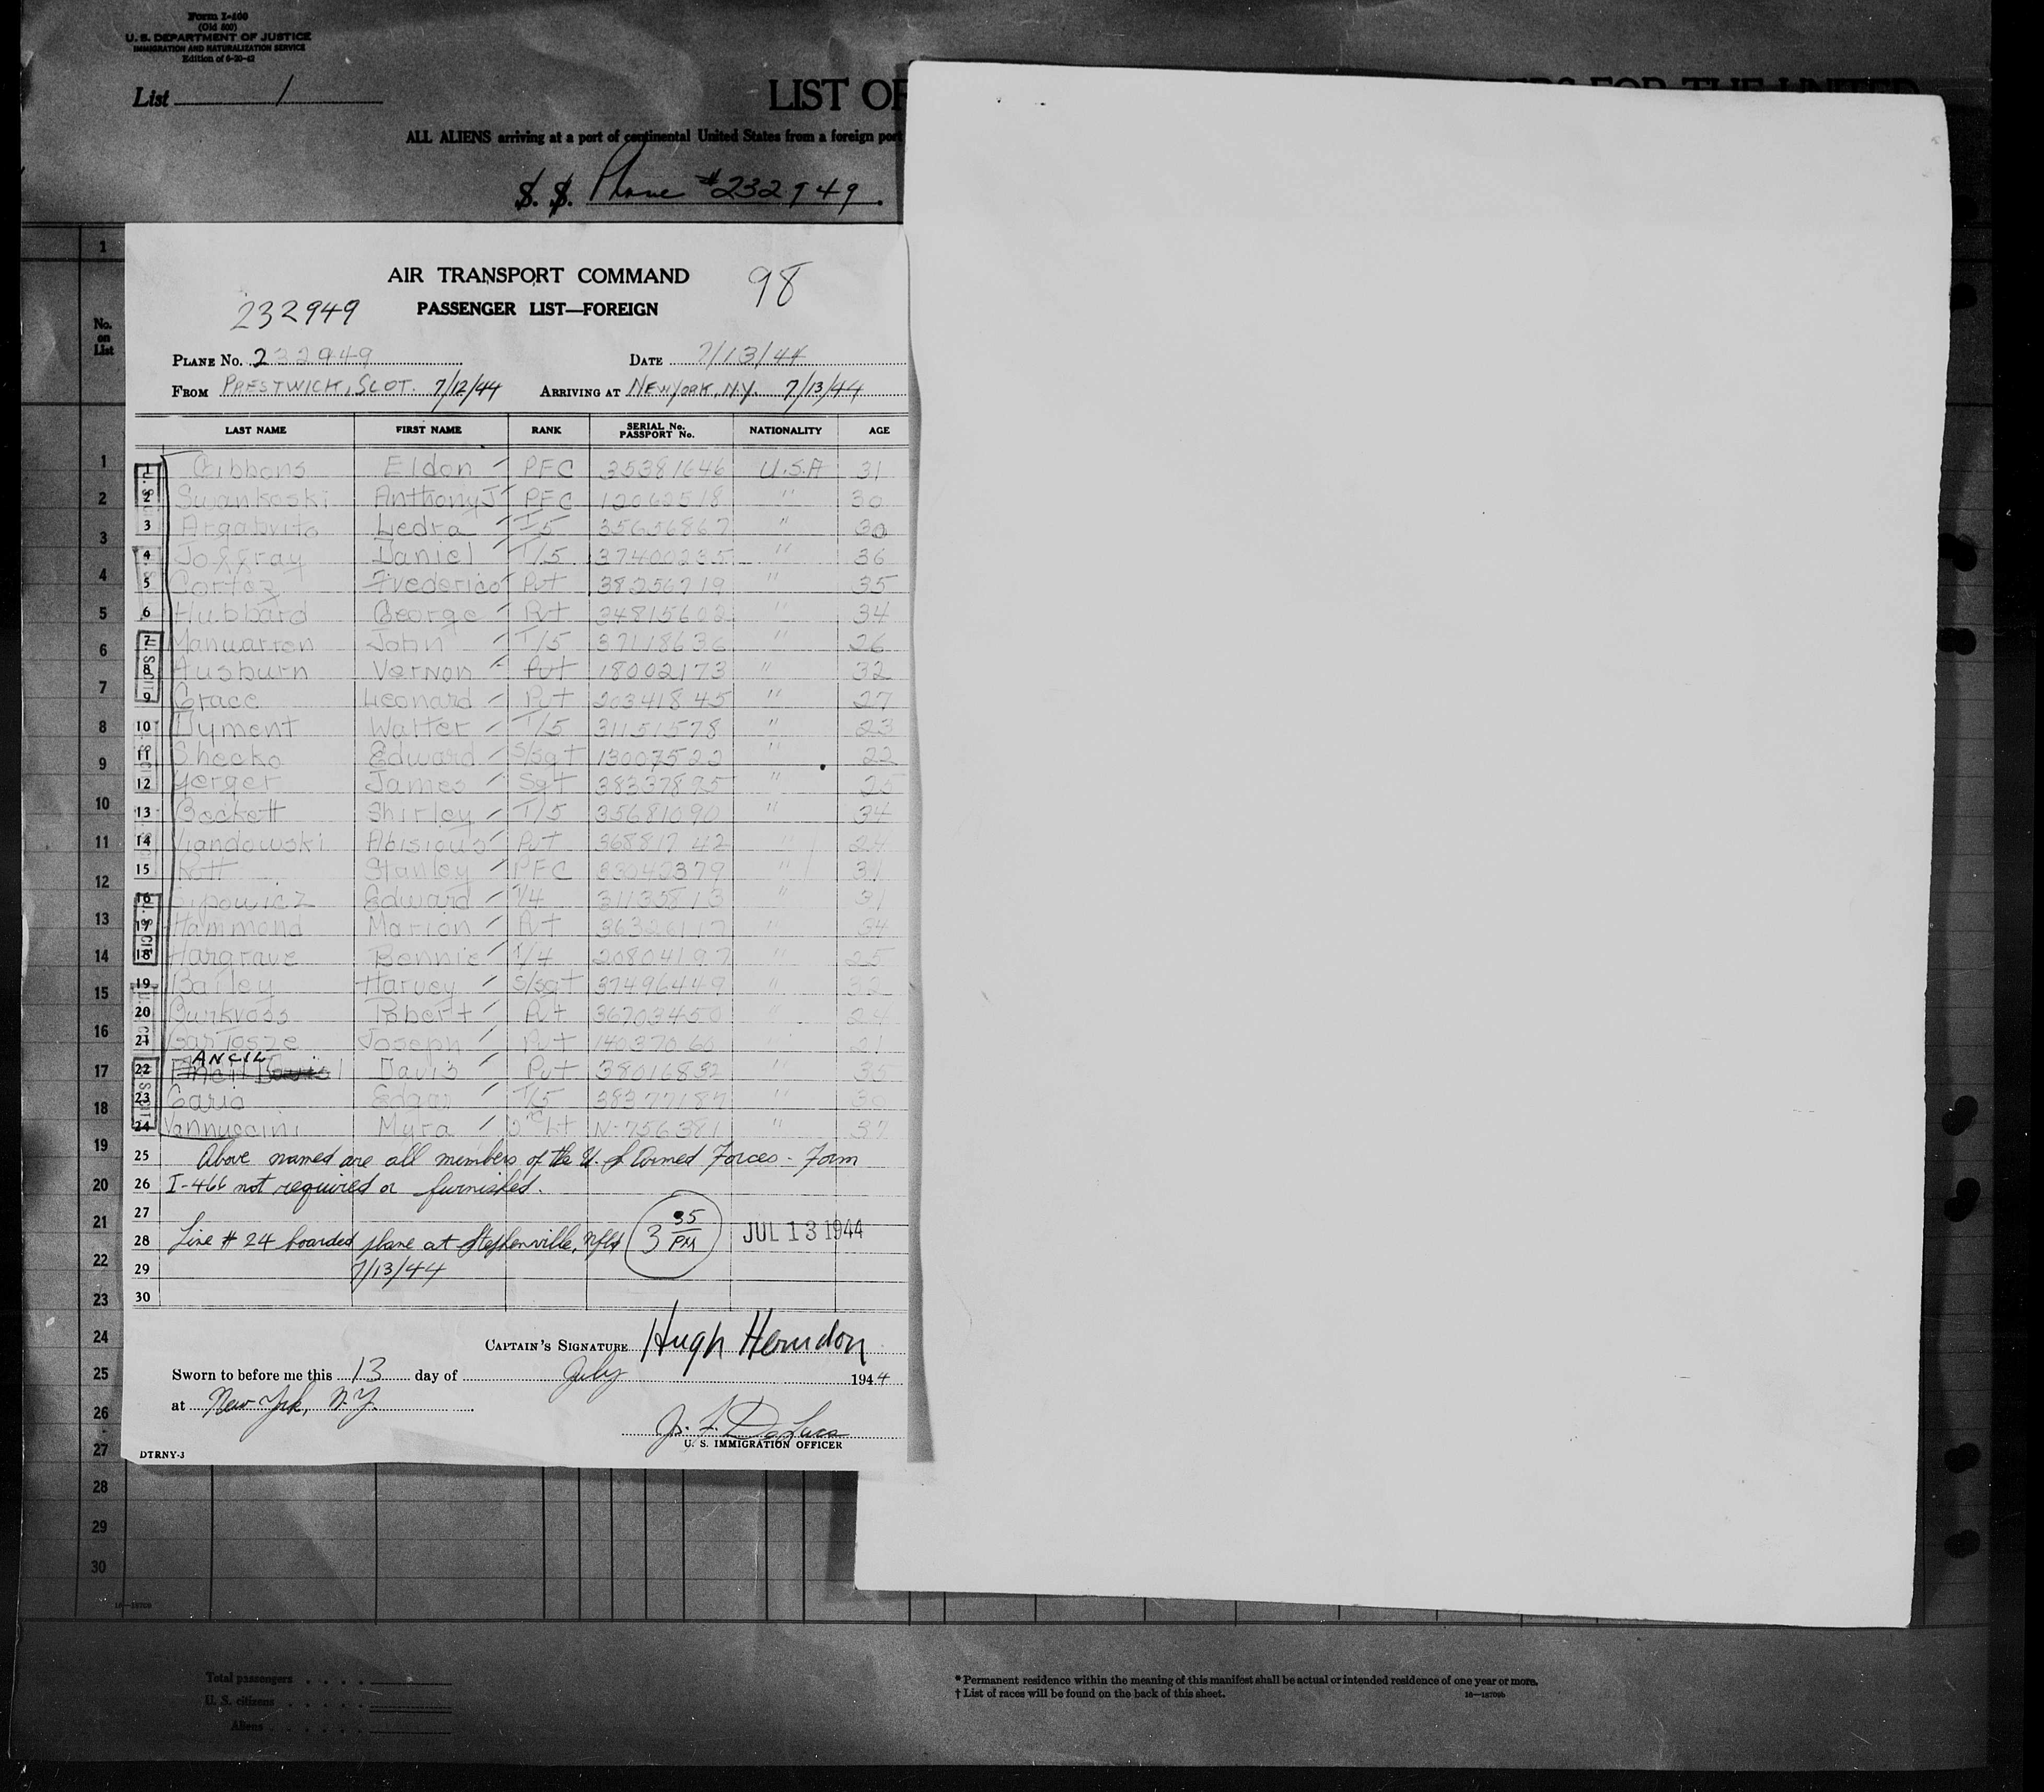 Form I-400
(Old 500)
U. S. DEPARTMENT OF JUSTICE
IMMIGRATION AND NATURALIZATION SERVICE
Edition of 6-20-42
List 1
LIST OF
ALL ALIENS arriving at a port of continental United States from a foreign port
S. S. Plane #232949
AIR TRANSPORT COMMAND 98
232949 PASSENGER LIST—FOREIGN
PLANE No. 232949 DATE 7/13/44
FROM PRESTWICK, SCOT. 7/12/44 ARRIVING AT NEW YORK, N.Y. 7/13/44
No. on List
LAST NAME FIRST NAME RANK SERIAL No. PASSPORT No. NATIONALITY AGE
1 Gibbons Eldon PFC 35381646 U.S.A 31
2 Swankoski Anthony J PFC 12062518 " 30
3 Argabrite Ledra T/5 35656867 " 30
4 Joffray Daniel T/5 37400235 " 36
5 Cortez Frederico Pvt 38256719 " 35
6 Hubbard George Pvt 34815602 " 34
7 Manuarren John T/5 37118636 " 26
8 Ausburn Vernon Pvt 18002173 " 32
9 Grace Leonard Pvt 20341845 " 27
10 Dyment Walter T/5 31151578 " 23
11 Shecko Edward S/Sgt 13007522 " 22
12 Yerger James Sgt 38337875 " 25
13 Beckett Shirley T/5 35681090 " 34
14 Pvt 36881742 " 24
15 Rott Stanley PFC 33042379 " 31
16 Lipowicz Edward T/4 31135813 " 31
17 Hammond Marion Pvt 36326117 " 34
18 Hargrave Bennie T/4 20804197 " 25
19 Bailey Harvey S/Sgt 37496449 " 32
20 Burkvass Robert Pvt 36703450 " 24
21 Joseph Pvt 14037060 " 21
22 ANCIL Davis Pvt 38016832 " 35
23 Edgar T/5 38377187 " 30
24 Vannuccini Myra 2nd Lt N-756381 " 37
25 Above named are all members of the U. S. Armed Forces - Form
26 I-466 not required or furnished.
27
28 Line # 24 boarded plane at Stephenville, Nfld 3 35 PM JUL 13 1944
29 7/13/44
30
CAPTAIN'S SIGNATURE Hugh Herndon
Sworn to before me this 13 day of July 1944
at New York, N.Y.
U. S. IMMIGRATION OFFICER
DTRNY-3
Total passengers
U. S. citizens
Aliens
* Permanent residence within the meaning of this manifest shall be actual or intended residence of one year or more.
† List of races will be found on the back of this sheet.